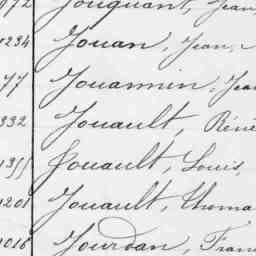 972 Jouquant, Jean
1234 Jouan, Jean,
77 Jouannin, Jea
332 Jouault, Réné
1355 Jouault, Louis,
1201 Jouault, Thoma
1016 Jourdan, Fran